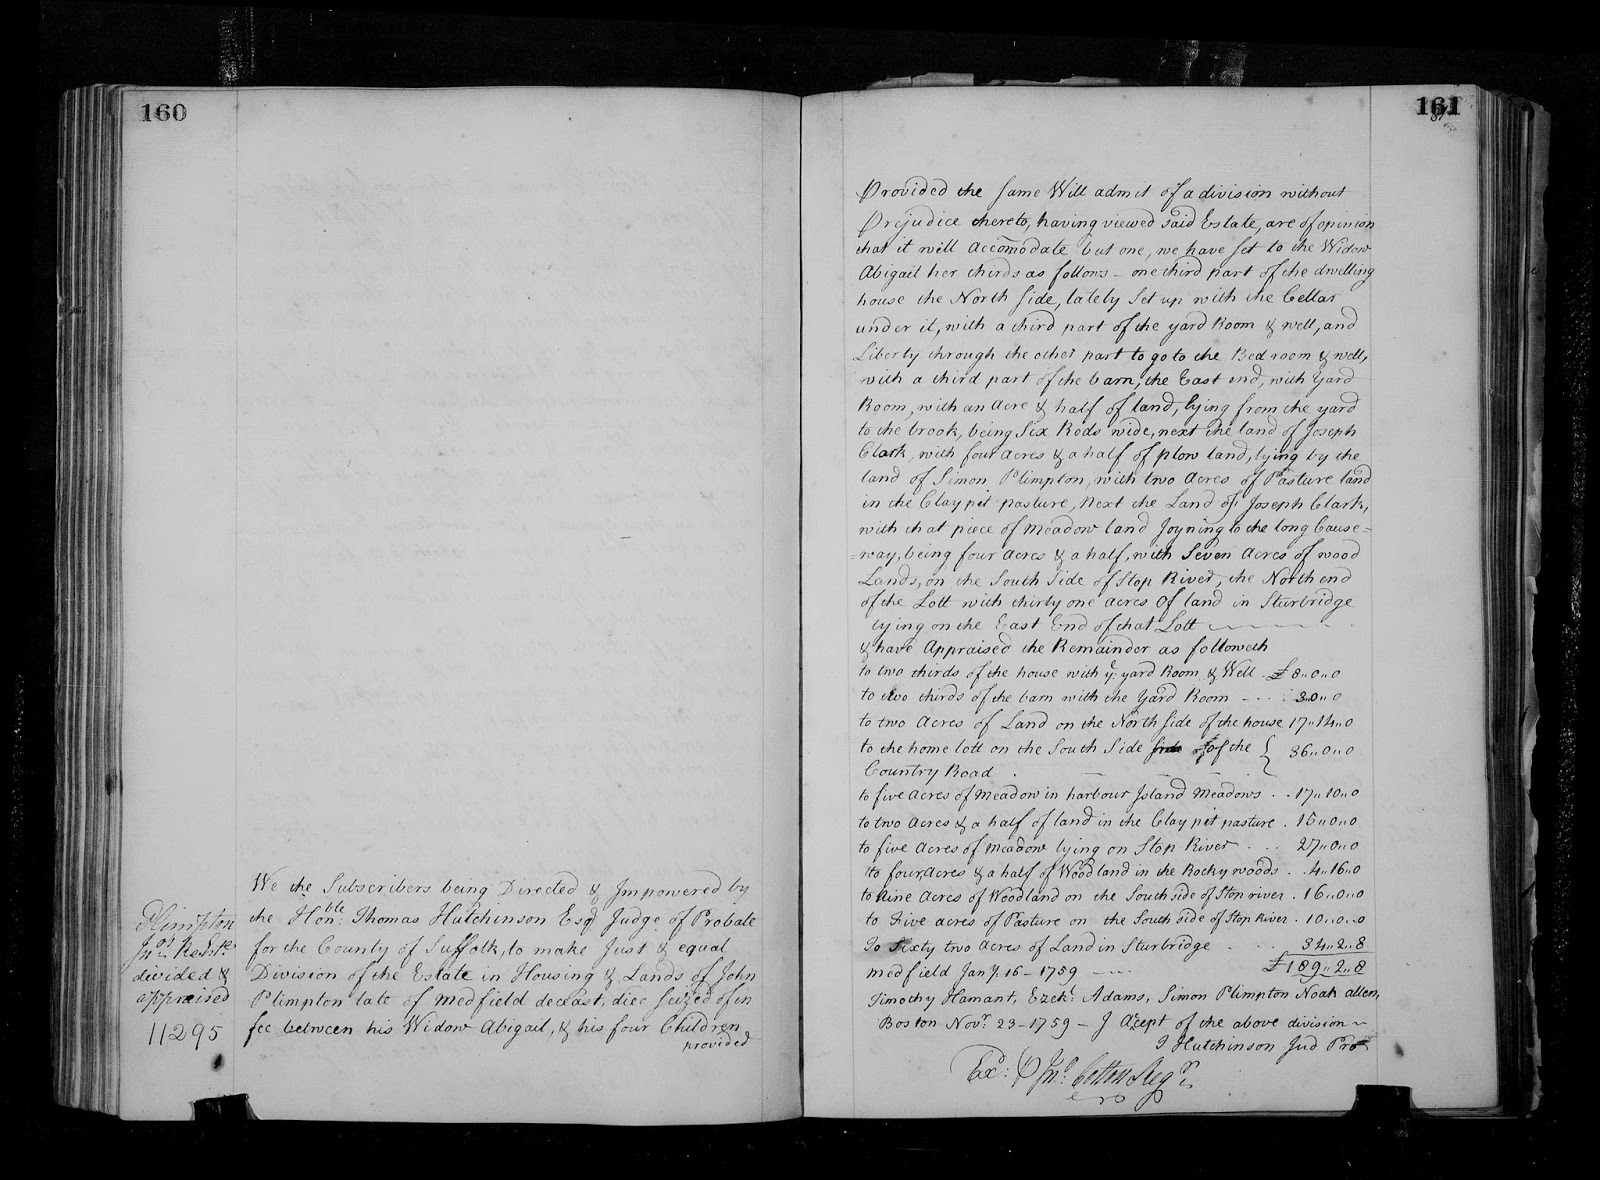 160
We the Subscribers being Directed & Impowered by
the Honble: Thomas Hutchinson Esqr Judge of Probate
for the County of Suffolk, to make Just & equal
Division of the Estate in Housing & Lands of John
Plimpton late of Medfield deceast, died seized of in
fee between his Widow Abigail, & his four Children
provided
Plimpton
Jnos Rest.
divided &
appraised
11295
161
87
Provided the same Will admit of a division without
Prejudice thereto, having viewed said Estate, are of opinion
that it will accomodate but one, we have set to the Widow
Abigail her thirds as follows - one third part of the dwelling
house the North side, lately set up with the Cellar
under it, with a third part of the yard Room & well, and
Liberty through the other part to go to the Bedroom & well,
with a third part of the barn, the East end, with Yard
Room, with an Acre & half of land, lying from the yard
to the brook, being Six Rods wide, next the land of Joseph
Clark, with four Acres & a half of plow land, lying by the
land of Simon Plimpton, with two Acres of Pasture land
in the Clay pit pasture, Next the Land of Joseph Clark,
with that piece of Meadow land Joyning to the long Cause=
=way, being four Acres & a half, with Seven Acres of wood
Lands, on the South Side of Stop River, the North end
of the Lott with thirty one acres of land in Sturbridge
lying on the East End of that Lott
& have Appraised the Remainder as followeth
to two thirds of the house with ye: yard Room & Well . £ 8..0..0
to two thirds of the barn with the Yard Room - .. 3..0..0
to two Acres of Land on the North side of the house 17..14..0
to the home lott on the South Side of the } 36..0..0
Country Road
to five Acres of Meadow in harbour Island Meadows . . 17..10..0
to two Acres & a half of land in the Clay pit pasture . 15..0..0
to five Acres of Meadow lying on Stop River . . . 27..0..0
to four Acres & a half of Woodland in the Rocky woods . 4..16..0
to Nine Acres of Woodland on the South side of Stop river . 16..0..0
to Five acres of Pasture on the South side of Stop River . 10..0..0
To Sixty two Acres of Land in Sturbridge . . 34..2..8
Medfield Jany. 16 - 1759 £189..2..8
Timothy Hamant, Ezekl. Adams, Simon Plimpton Noah allen,
Boston Novr. 23 - 1759 - I Accept of the above division
T Hutchinson Jud Pro
Exd: P Jno. Cotton Regr.